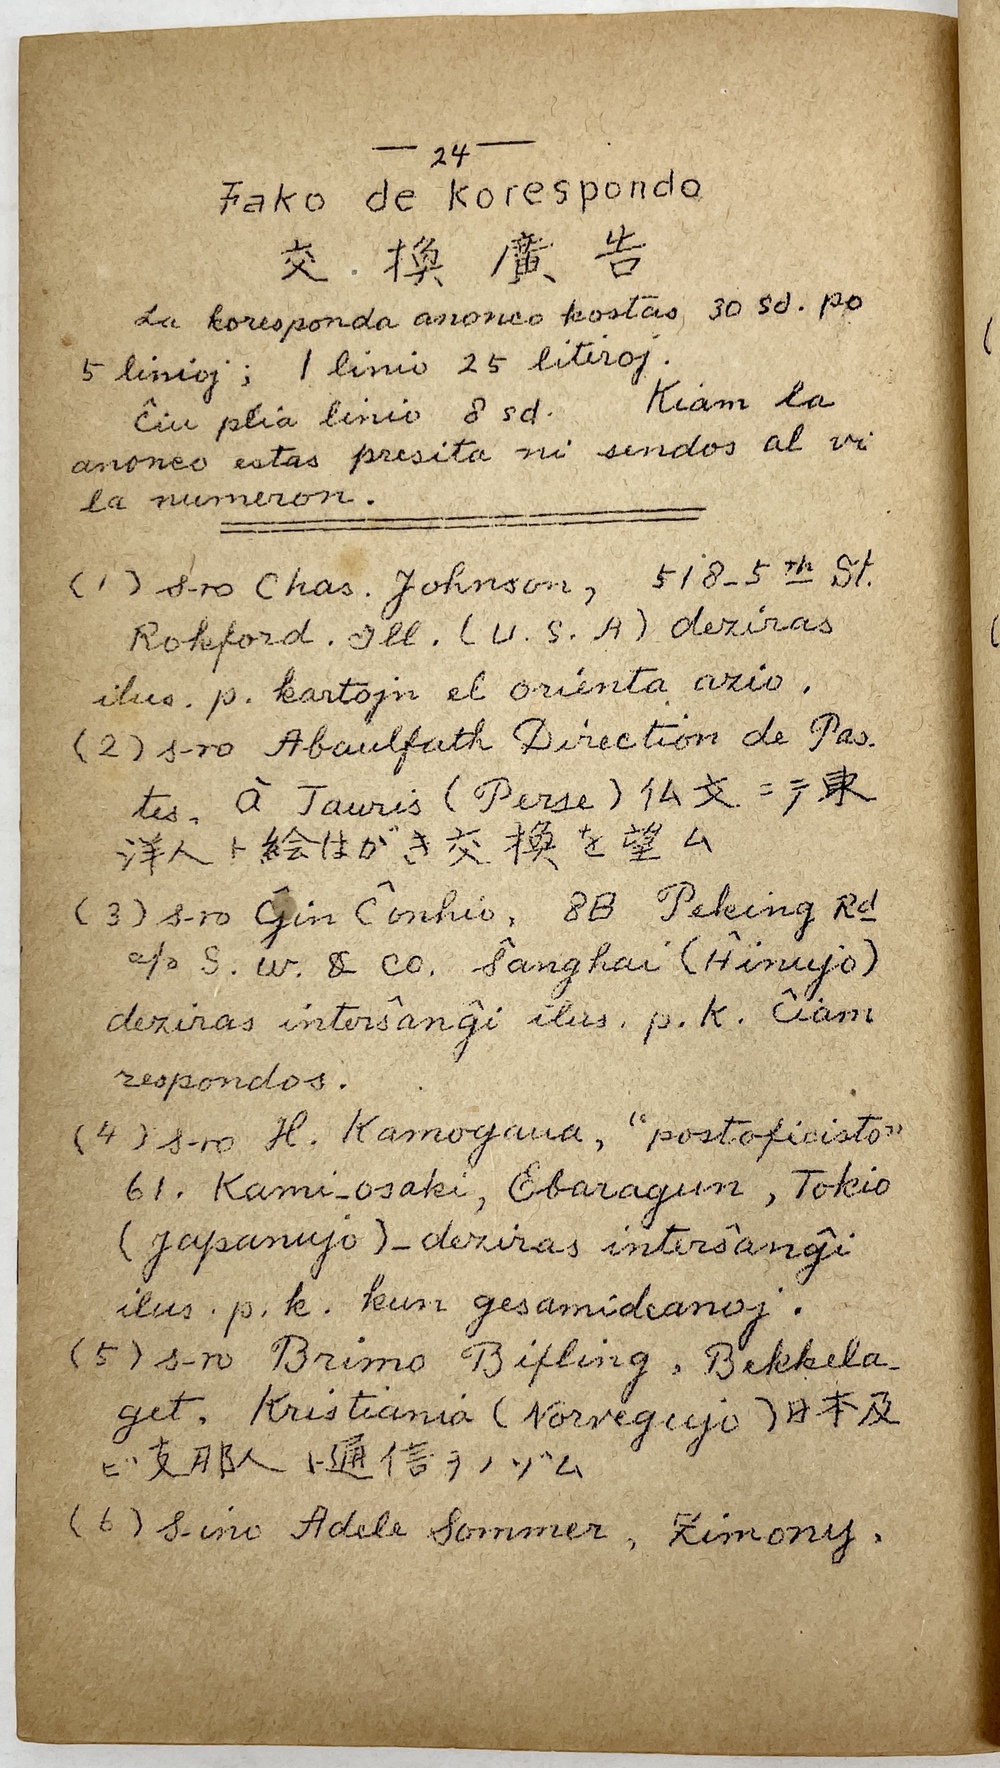 — 24 —
Fako de korespondo
交換廣告
La koresponda anonco kostas 30 sd. po
5 linioj; 1 linio 25 litiroj.
Ĉiu plia linio 8 sd. Kiam la
anonco estas presita ni sendos al vi
la numeron.
(1) s-ro Chas. Johnson, 518-5th St.
Rokford. Ill. (U. S. A) deziras
ilus. p. kartojn el orienta azio.
(2) s-ro Abaulfath Direction de Pos-
tes. À Tauris (Perse) 仏文ニテ東
洋人ト絵はがき交換を望ム
(3) s-ro Ĝin Ĉonhio, 8B Peking Rd
a/o S. W. & Co. Ŝanghai (Ĥinujo)
deziras interŝanĝi ilus. p. k. Ĉiam
respondos.
(4) s-ro H. Kamogaua, "postoficisto"
61. Kami-osaki, Ebaragun, Tokio
(Japanujo)-deziras interŝanĝi
ilus. p. k. kun gesamideanoj.
(5) s-ro Brimo Bifling, Bekkela-
get, Kristiania (Norvegujo) 日本及
ビ支那人ト通信ヲノゾム
(6) s-ino Adele Sommer, Zimony,